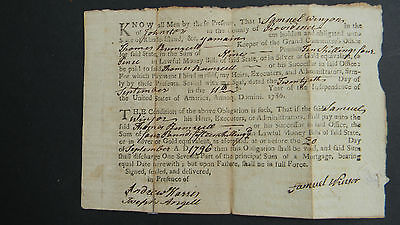 KNOW all Men by these Presents, That I Samuel Winsor
of Johnston in the County of Providence
State of Rhode-Island, &c. am holden and obligated unto
Thomas Rumreill Keeper of the Grand Committee's Office
for said State in the Sum of Nine Ten Shilling four
Pence in Lawful Money of said State, or in Silver or Gold equivalent, to
be paid to said Thomas Rumreill
For which Payment I bind myself, my Heirs, Executors, and Administrators,
firmly by these Presents, sealed with my Seal this Twentyeth Day of
September in the 11th Year of the Independence of the
United States of America, Annoque Domini 1786.
THE Condition of the above Obligation is such, That if the said Samuel
Winsor his Heirs, Executors, or Administrators, shall pay unto the
said Thomas Rumreill or his Successor in said Office, the
Sum of in Lawful Money of said State,
or in Silver or Gold equivalent, as aforesaid, on or before the 20 Day
of September A. D. 1796 then this Obligation shall be void, and
shall discharge One Seventh Part of the principal Sum of a Mortgage, bearing
equal Date herewith, but upon Failure shall be in full Force.
Signed, sealed, and delivered,
in Presence of
Andrew Harris
Samuel Winsor
Joseph Angell